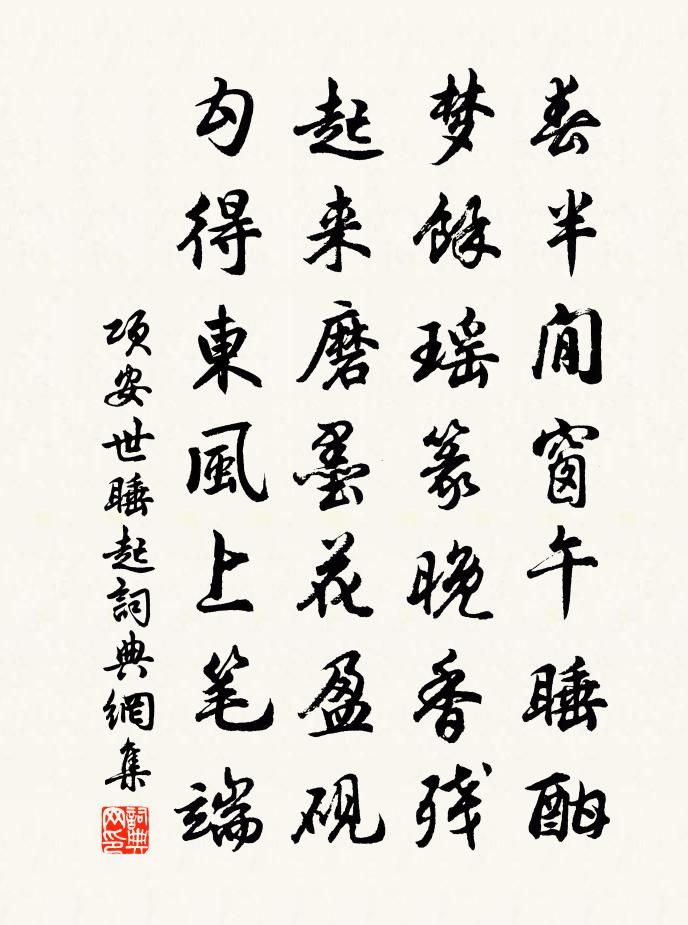 春半閒窗午睡酣
梦餘瑶篆晚香残
起来磨墨花盈砚
勾得東風上笔端
项安世睡起詞典網集
詞典网印